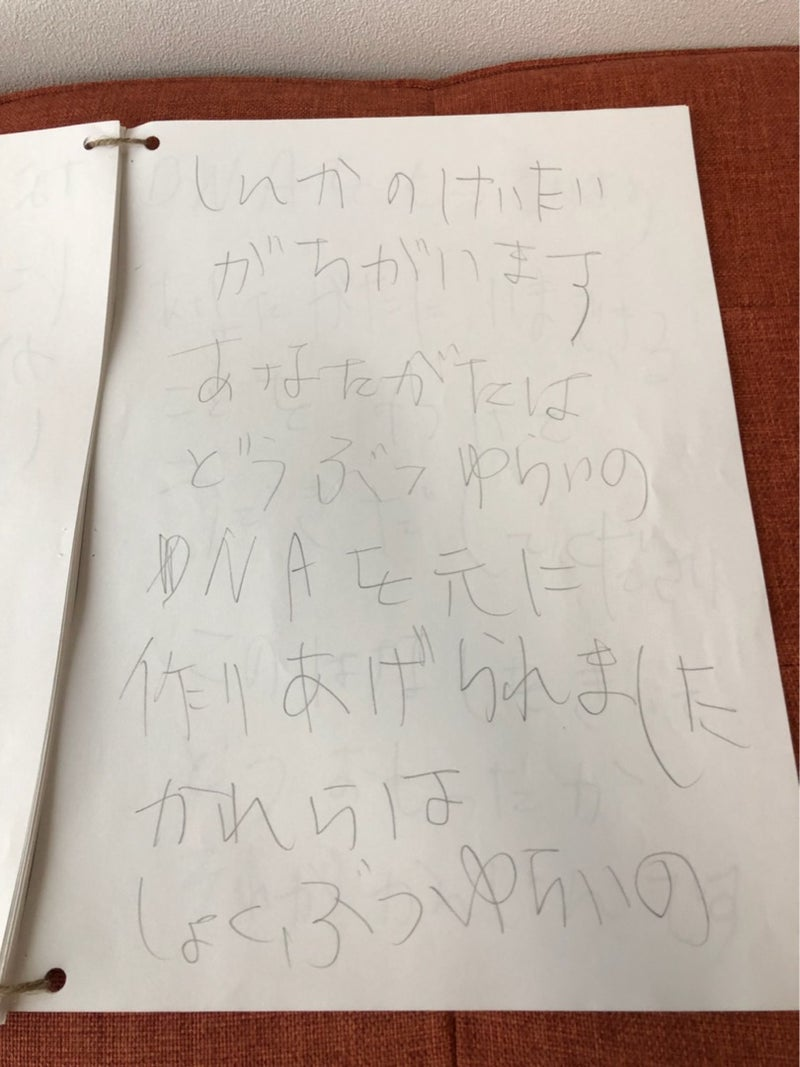 しんかのけいたい
がちがいます
あなたがたは
どうぶつゆらいの
DNAを元に
作りあげられました
かれらは
しょくぶつゆらいの